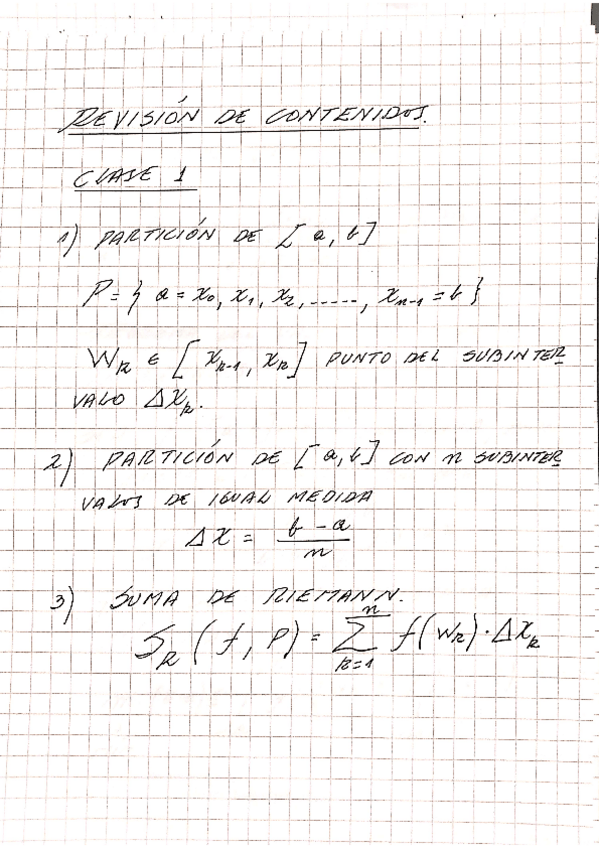 REVISIÓN DE CONTENIDOS.
CLASE 1
1) PARTICIÓN DE [a, b]
P = { a = x₀, x₁, x₂, ....., xₙ₋₁ = b }
Wₖ ∈ [ xₖ₋₁, xₖ ] PUNTO DEL SUBINTER
VALO Δxₖ.
2) PARTICIÓN DE [a, b] CON n SUBINTER
VALOS DE IGUAL MEDIDA
Δx = (b - a) / n
3) SUMA DE RIEMANN.
Sₖ (f, P) = ∑ₖ₌₁ⁿ f(Wₖ) · Δxₖ